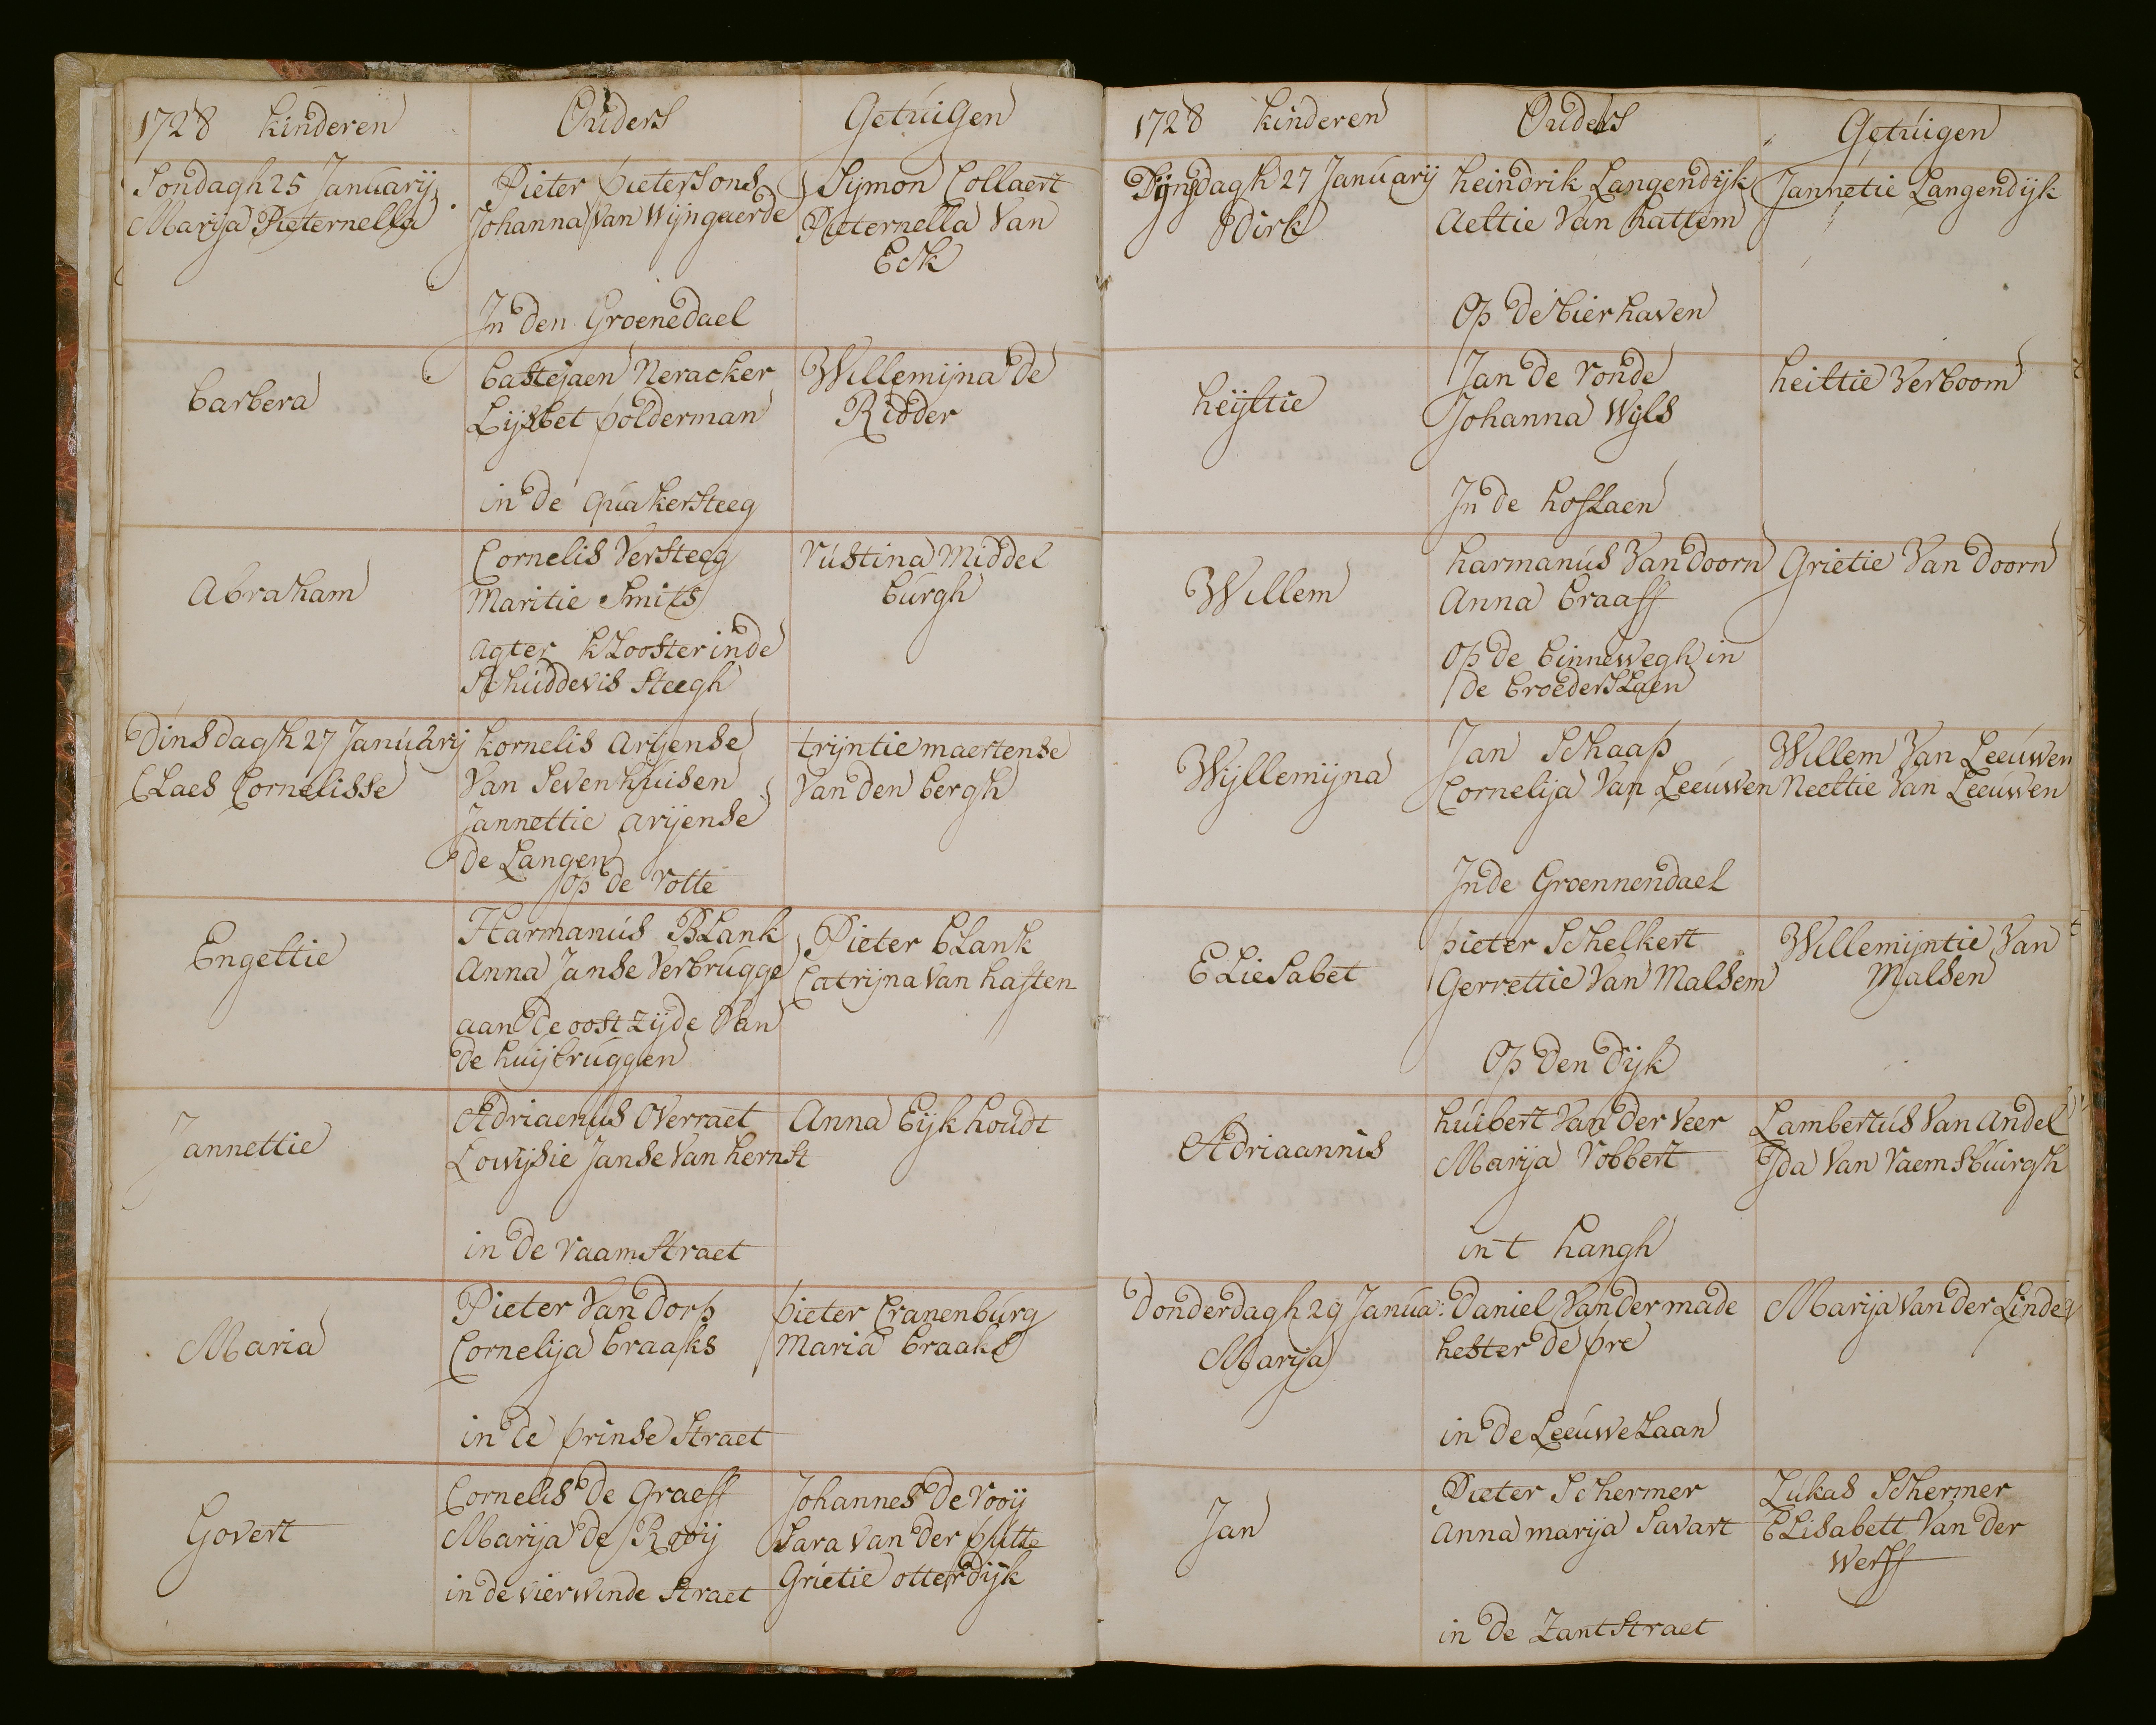 1728 kinderen Ouders Getuigen
Sondagh 25 Januarij
Marija Pieternella
Pieter pietersons
Johanna Van Wijngaerde
In den Groenedael
Sijmon Collaert
Pieternella Van
Eck
barbera
bastejaen Neracker
Lijsbet polderman
in de quakersteeg
Willemijna de
Ridder
Abraham
Cornelis Versteeg
Maritie Smits
agter kLooster in de
Schuddevis Steegh
rustina Middel
burgh
Dinsdagh 27 Januarij
CLaes Cornelisse
kornelis arijense
Van Sevenhuisen
Jannettie arijense
de Langen
op de rotte
trijntie maertense
Van den bergh
Engeltie
Harmanus BLank
Anna Janse Verbrugge
aan de oost zijde Van
de huijbruggen
Pieter bLank
Catrijna Van haften
Jannettie
Adriaenus Overraet
Lowijsie Janse Van hernst
in de raamstraet
Anna Eijkhoudt
Maria
Pieter Van Dorp
Cornelija braaks
in de prinse Straet
pieter Cranenburg
Maria braaks
Govert
Cornelis de Graeff
Marija de Rooij
in de vierwinde Straet
Johannes de rooij
Sara van der putte
Grietie otterdijk
1728 kinderen Ouders Getuigen
Dijnsdagh 27 Januarij
Dirk
heindrik Langendijk
Aeltie Van hattem
Op de bierhaven
Jannetie Langendijk
heijltie
Jan de ronde
Johanna Wijls
In de hofLaen
heiltie Verboom
Willem
harmanus Van Doorn
Anna braaff
op de binnewegh in
de broedersLaen
Grietie Van Doorn
Wijllemijna
Jan Schaap
Cornelija Van Leeuwen
In de Groennendael
Willem Van Leeuwen
Neeltie Van Leeuwen
ELiesabet
pieter Schelkert
Gerrettie Van Malsem
Op den Dijk
Willemijntie Van
Malsen
Adriaannis
huibert Van der Veer
Marija robbert
in t hangh
Lambertus Van Andel
Ida Van raemsbuirgh
Donderdagh 29 Janua:
Marija
Daniel Van der made
hester de pre
in de LeeuweLaan
Marija Van der Linden
Jan
Pieter Schermer
Anna marija Savart
in de Zantstraet
Lukas Schermer
ELisabett Van der
Werff